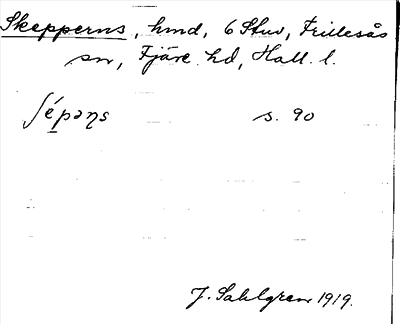 Skepperns, hmd, 6 Stuv, Frillesås
sn, Fjäre hd, Hall. l.
ʃépəns s. 90
J. Sahlgren 1919.